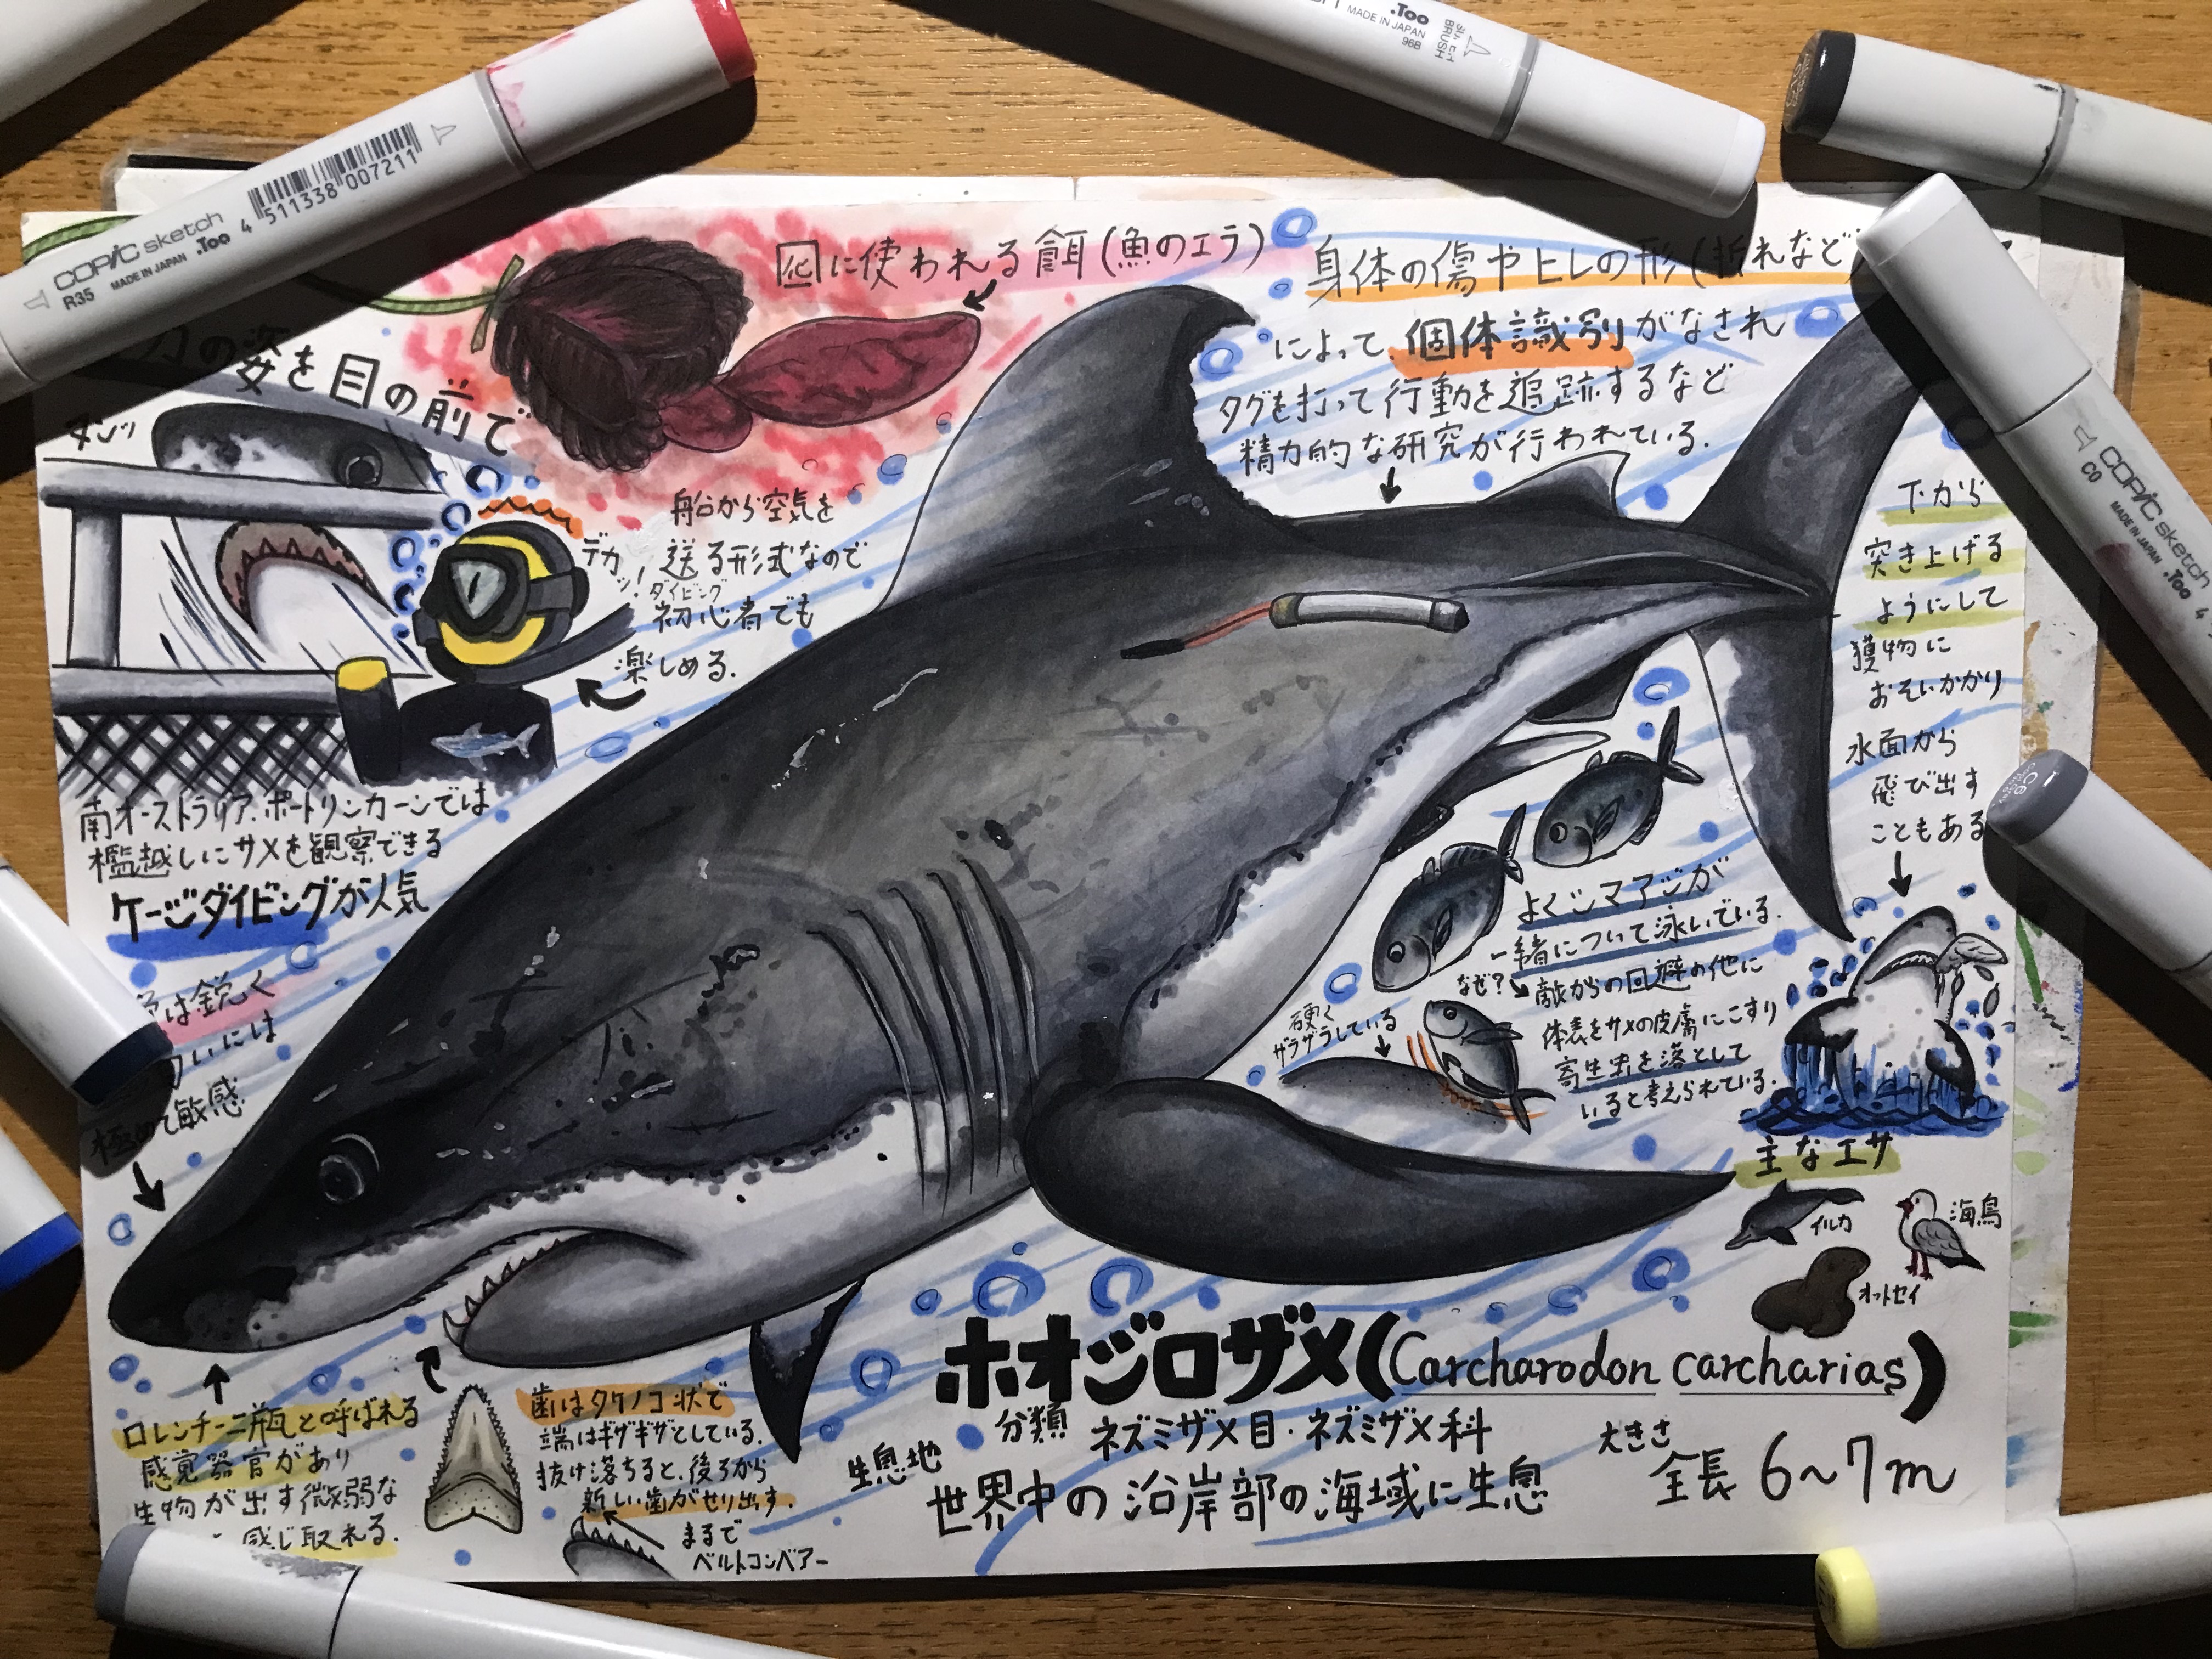 COPIC sketch
.Too
MADE IN JAPAN
R35
4 511338 007211
.Too
MADE IN JAPAN
96B
BRUSH
に使われる餌(魚のエラ)
身体の傷やヒレの形(折れなど
によって、個体識別がなされ
タグを打って行動を追跡するなど
精力的な研究が行われている.
の姿を目の前で
船から空気を
送る形式なので
ダイビング
初心者でも
楽しめる.
デカッ!
南オーストラリア.ポートリンカーンでは
檻越しにサメを観察できる
ケージダイビングが人気
は鋭く
いには
極めて敏感
下から
突き上げる
ようにして
獲物に
おそいかかり
水面から
飛び出す
こともある
COPIC sketch
C0
MADE IN JAPAN
.Too
4
C6
よくシマアジが
一緒について泳いでいる.
なぜ?
敵からの回避の他に
体表をサメの皮膚にこすり
寄生虫を落として
いると考えられている.
硬く
ザラザラしている
主なエサ
イルカ
海鳥
オットセイ
ホオジロザメ(Carcharodon carcharias)
分類 ネズミザメ目・ネズミザメ科
生息地 世界中の沿岸部の海域に生息
大きさ 全長 6~7m
ロレンチーニ瓶と呼ばれる
感覚器官があり
生物が出す微弱な
感じ取れる.
歯はタケノコ状で
端はギザギザとしている.
抜け落ちると、後ろから
新しい歯がせり出す.
まるで
ベルトコンベアー